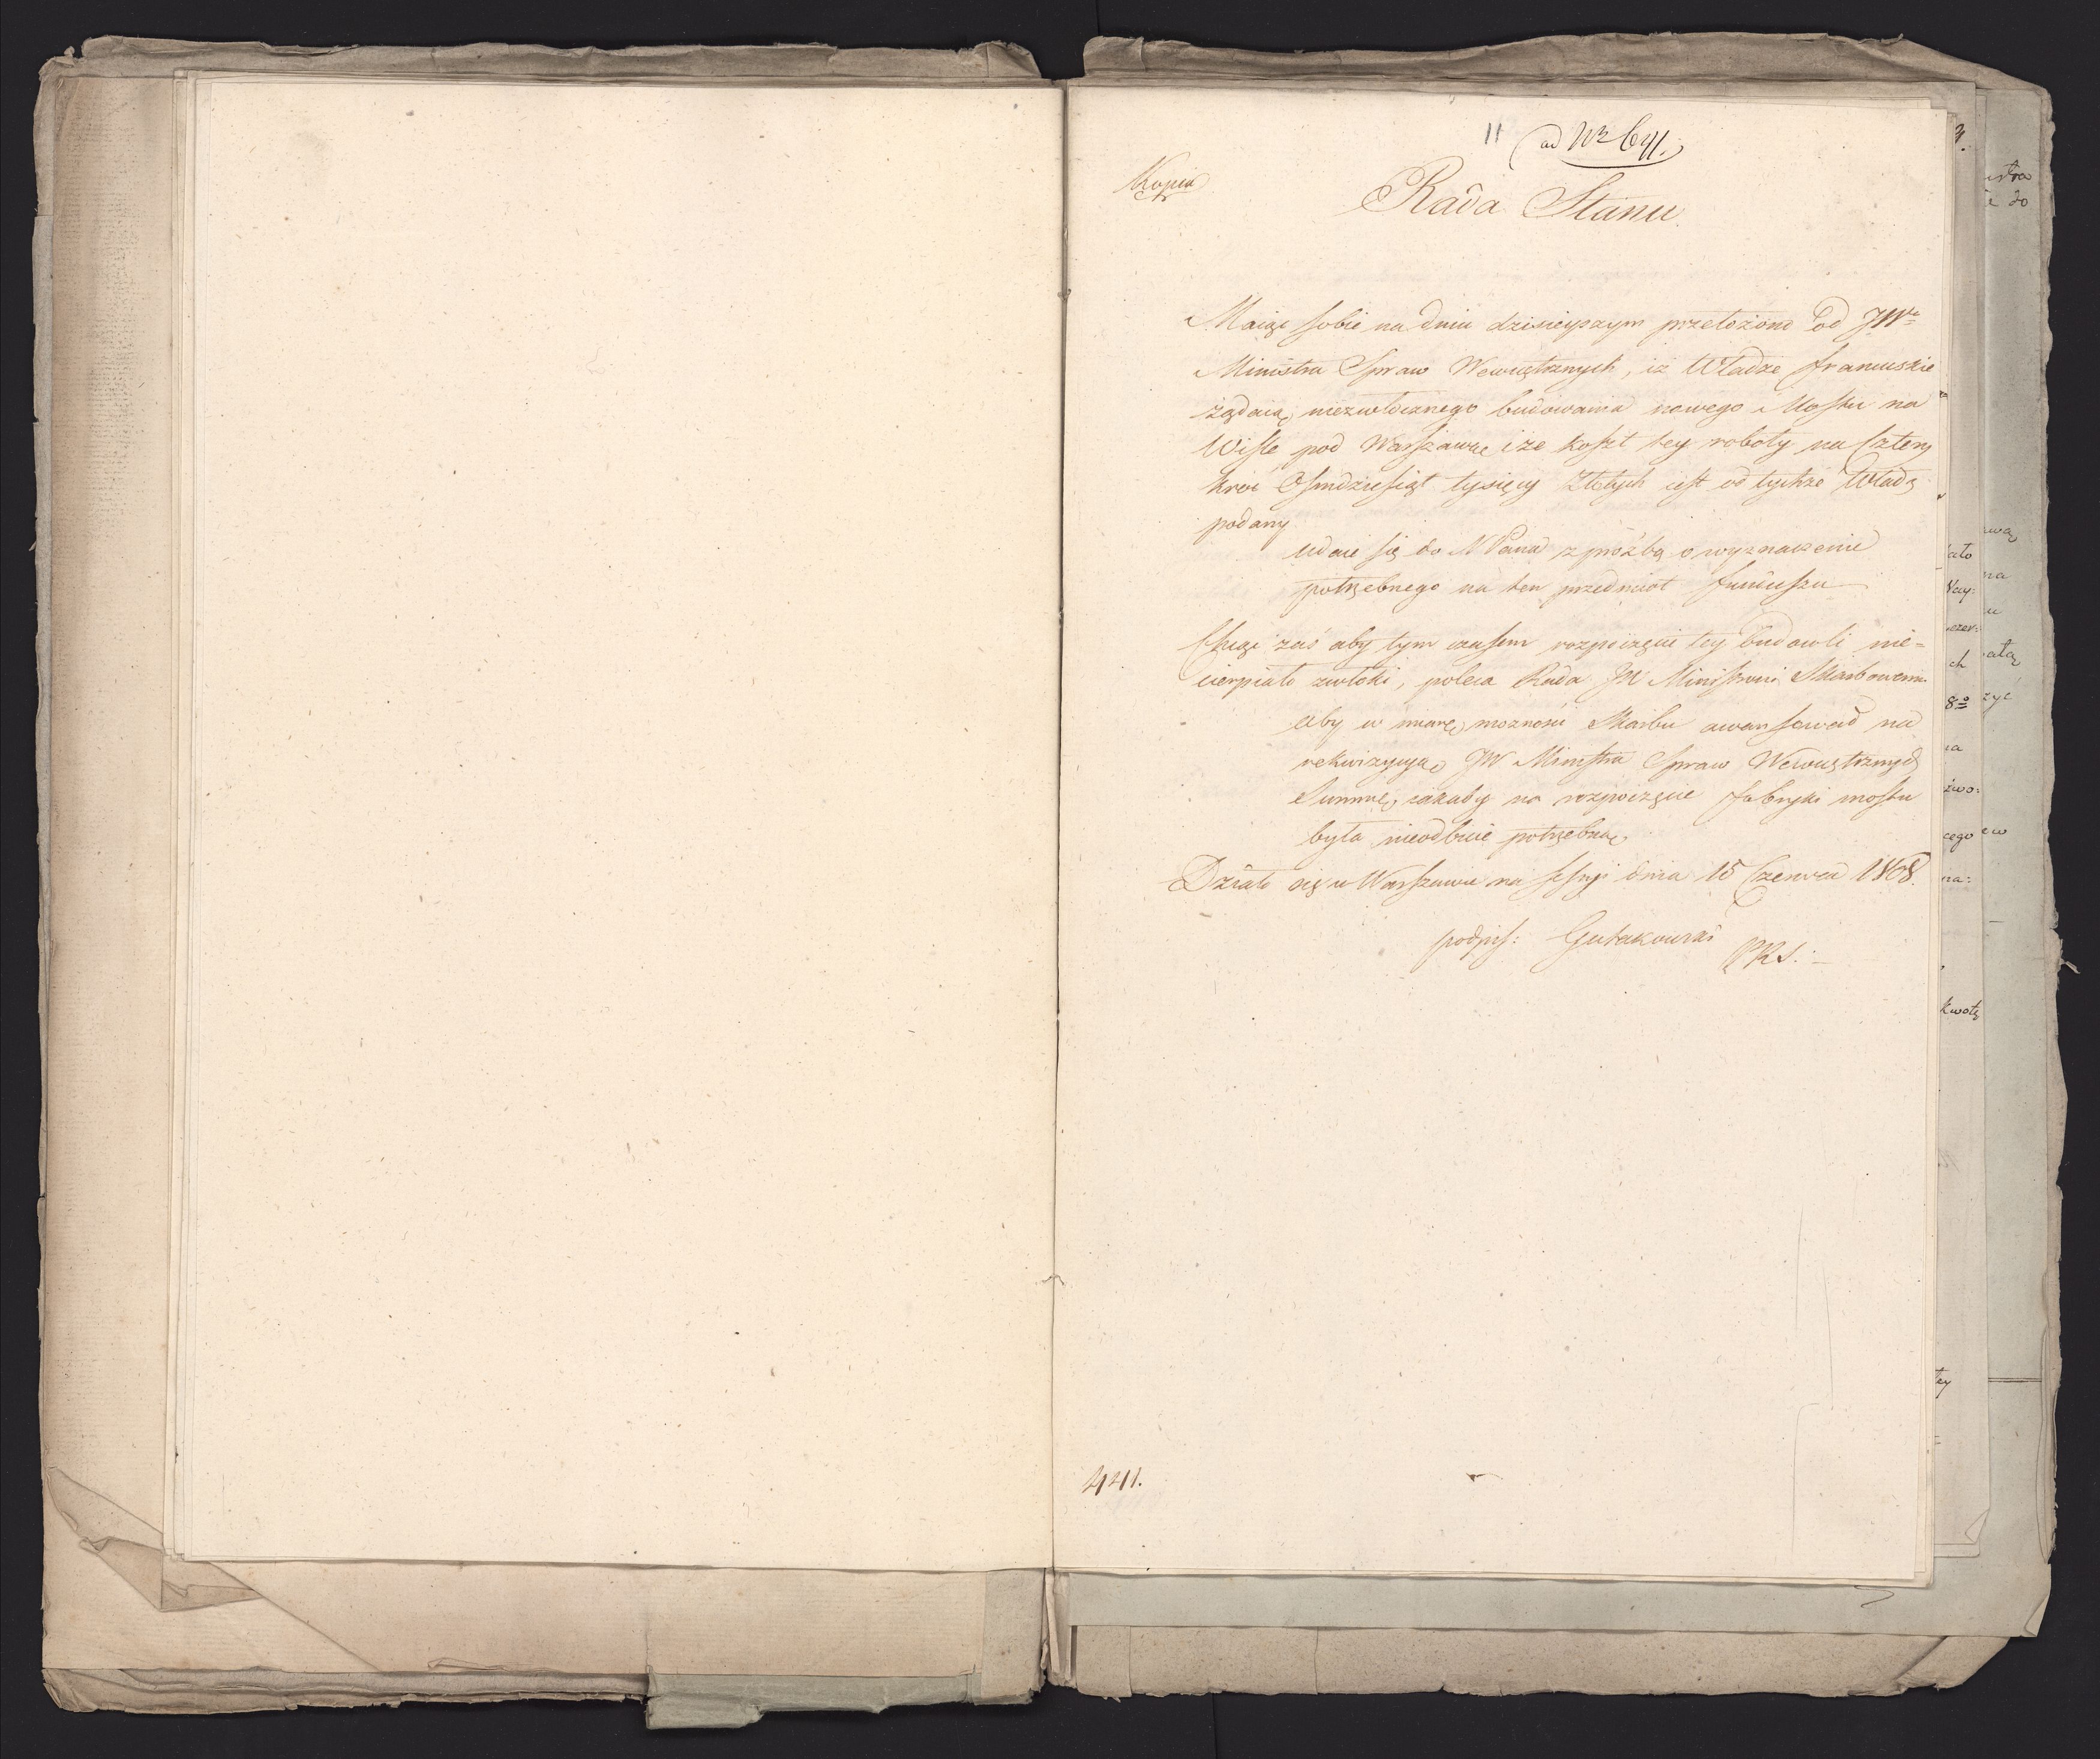 11
ad Nr 641.
Kopia
Rada Stanu.
Maiąc sobie na dniu dzisieyszym przełożono od JWo
Ministra Spraw Wewnętrznych, iż Władze francuskie
żądaią niezwłocznego budowania nowego Mostu na
Wiśle pod Warszawą i że koszt tey roboty na Cztery
kroć Osmdziesiąt tysięcy Złotych iest od tychże Władz
podany
udaie się do N Pana z prożbą o wyznaczenie
potrzebnego na ten przedmiot funduszu
Chcąc zaś aby tym czasem rozpoczęcie tey budowli nie=
cierpiało zwłoki, poleca Rada JW Ministrowi Skarbowemu
aby w miarę możności Skarbu awansował na
rekwizycyą JW Ministra Spraw Wewnętrznych
Summę, iakaby na rozpoczęcie fabryki mostu
była nieodbicie potrzebną
Działo się w Warszawie na Sessyi dnia 15 Czerwca 1808.
podpis: Gutakowski
PRS.
441.
kwotę